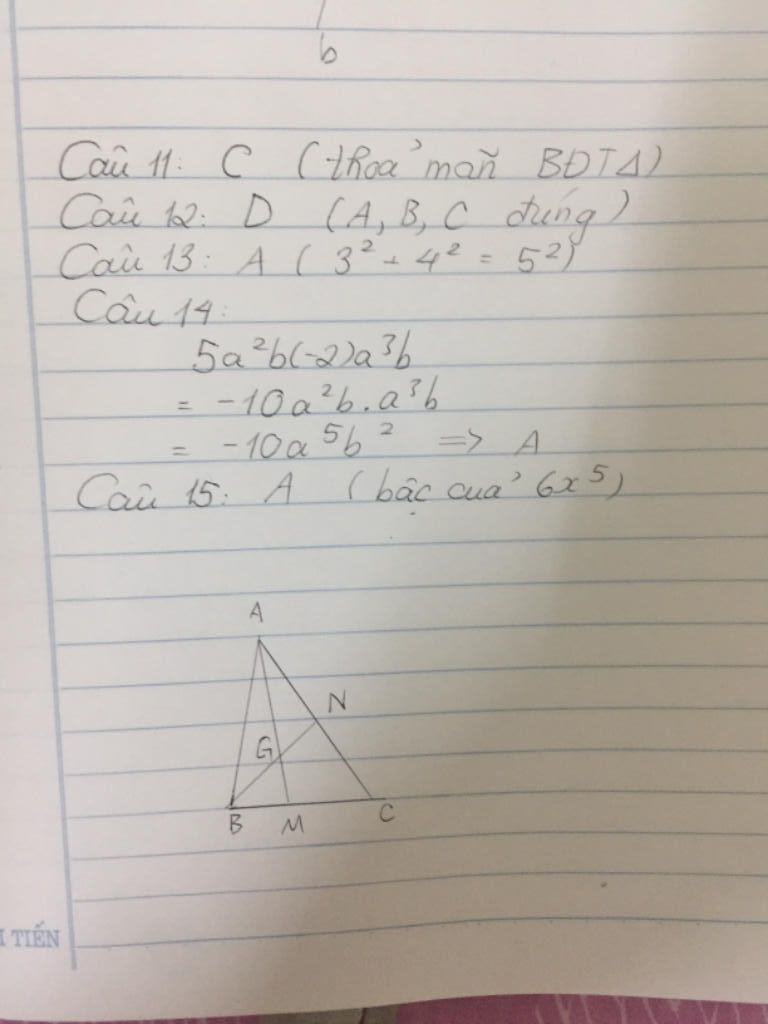 b
Câu 11: C (thoả mãn BĐT∆)
Câu 12: D (A, B, C đúng)
Câu 13: A (3² + 4² = 5²)
Câu 14:
5a²b(-2)a³b
= -10a²b.a³b
= -10a⁵b² => A
Câu 15: A (bậc của 6x⁵)
A
N
G
B M C
TIẾN